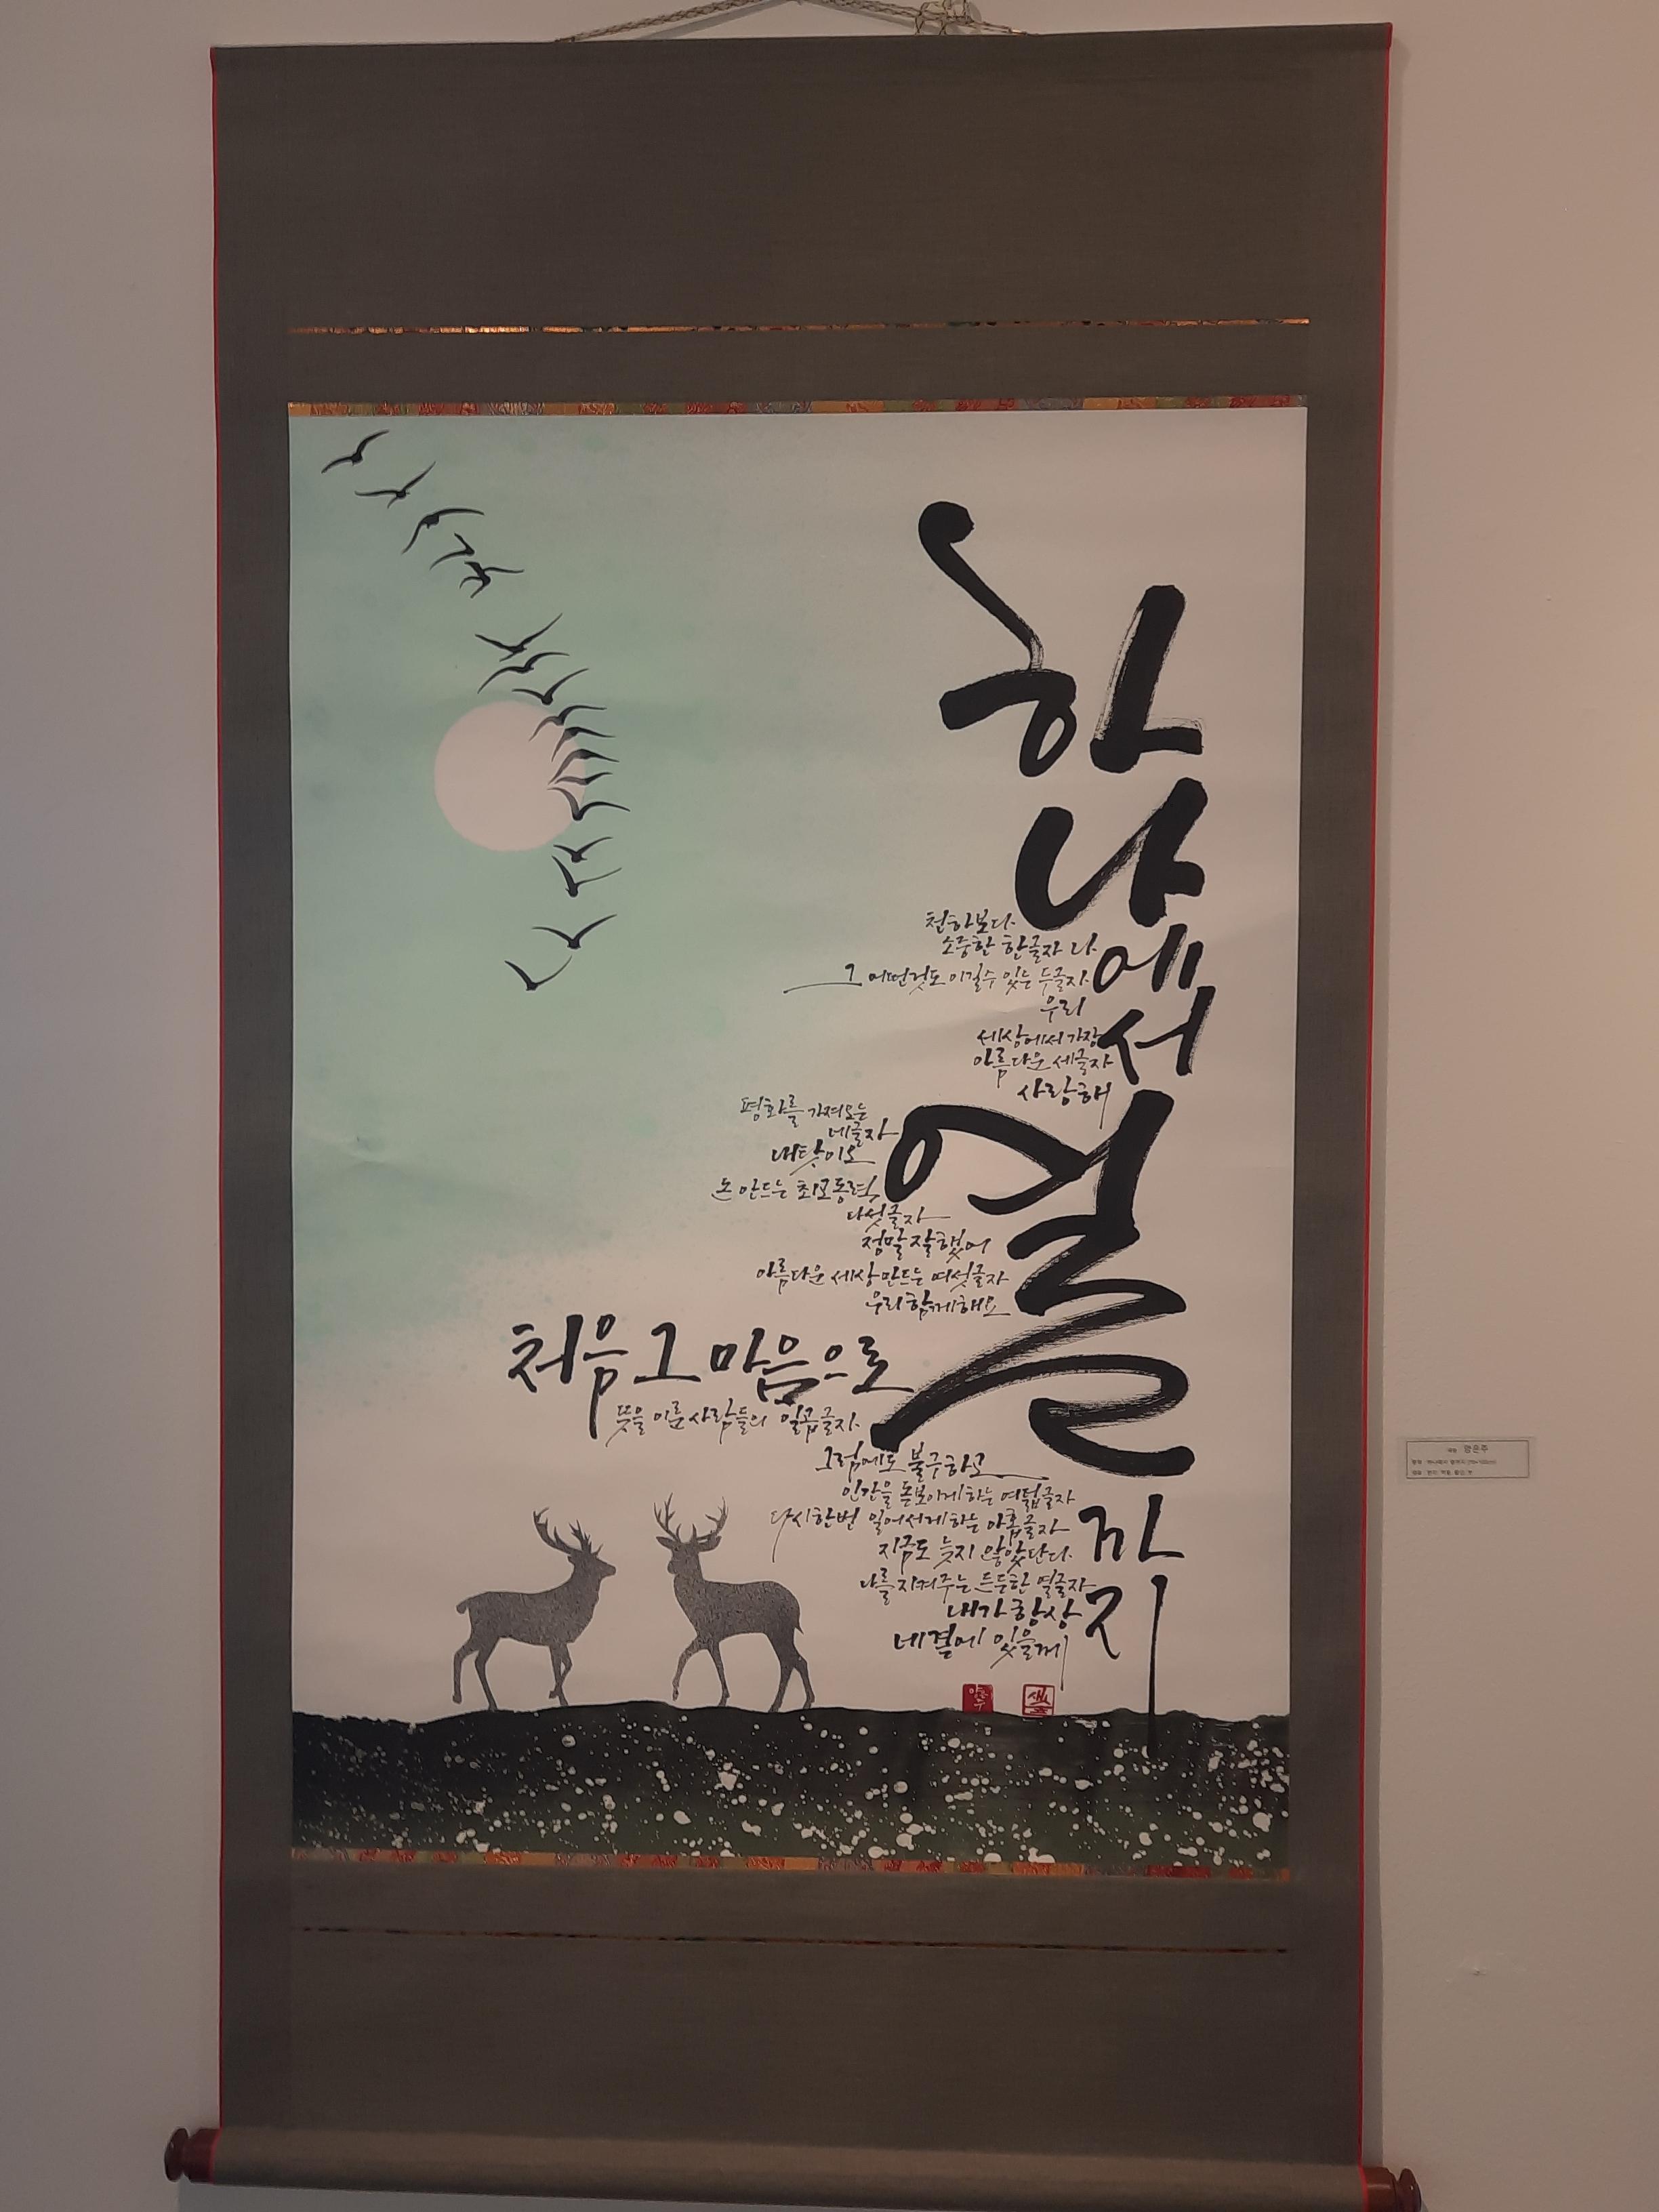 하나에서
열
까지
천하보다
소중한 한글자 나
그 어떤것도 이길수 있는 두글자
우리
세상에서 가장
아름다운 세글자
사랑해
평화를 가져오는
네글자
내탓이오
돈 안드는 최고동력
다섯글자
정말잘했어
아름다운 세상 만드는 여섯글자
우리함께해요
처음 그 마음으로
뜻을 이룬 사람들의 일곱글자
그럼에도 불구하고
인간을 돋보이게하는 여덟글자
다시한번 일어서게하는 아홉글자
지금도 늦지 않았단다
나를 지켜주는 든든한 열글자
내가 항상
네곁에 있을께